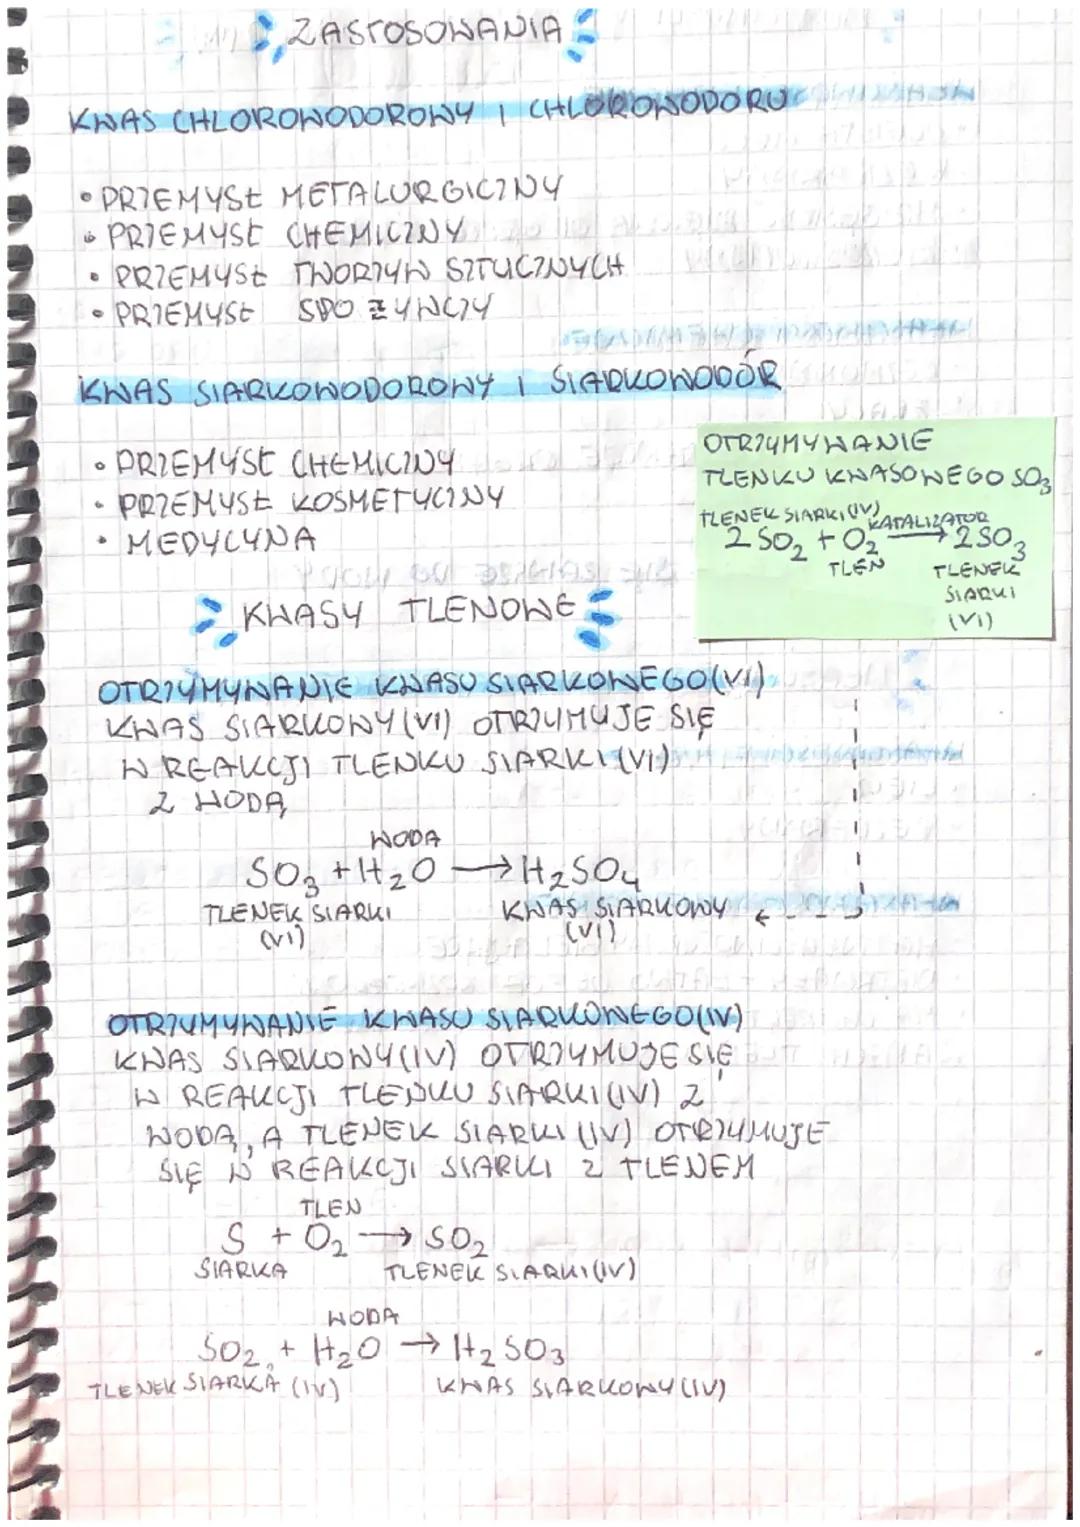 ZASTOSOWANIA
KWAS CHLOROWODOROWY I CHLOROWODORU
• PRZEMYSŁ METALURGICZNY
• PRZEMYSŁ CHEMICZNY
• PRZEMYSŁ TWORZYW SZTUCZNYCH
• PRZEMYSŁ SPOŻYWCZY
KWAS SIARKOWODOROWY I SIARKOWODÓR
• PRZEMYSŁ CHEMICZNY
• PRZEMYSŁ KOSMETYCZNY
• MEDYCYNA
OTRZYMYWANIE
TLENKU KWASOWEGO SO₃
TLENEK SIARKI(IV) KATALIZATOR
2 SO₂ + O₂ → 2SO₃
TLEN TLENEK
SIARKI
(VI)
KWASY TLENOWE
OTRZYMYWANIE KWASU SIARKOWEGO(VI)
KWAS SIARKOWY(VI) OTRZYMUJE SIĘ
W REAKCJI TLENKU SIARKI(VI)
Z WODĄ
WODA
SO₃ + H₂O → H₂SO₄
TLENEK SIARKI KWAS SIARKOWY
(VI) (VI)
OTRZYMYWANIE KWASU SIARKOWEGO(IV)
KWAS SIARKOWY(IV) OTRZYMUJE SIĘ
W REAKCJI TLENKU SIARKI(IV) Z
WODĄ, A TLENEK SIARKI (IV) OTRZYMUJE
SIĘ W REAKCJI SIARKI Z TLENEM
TLEN
S + O₂ → SO₂
SIARKA TLENEK SIARKI(IV)
WODA
SO₂ + H₂O → H₂SO₃
TLENEK SIARKA (IV) KWAS SIARKOWY(IV)